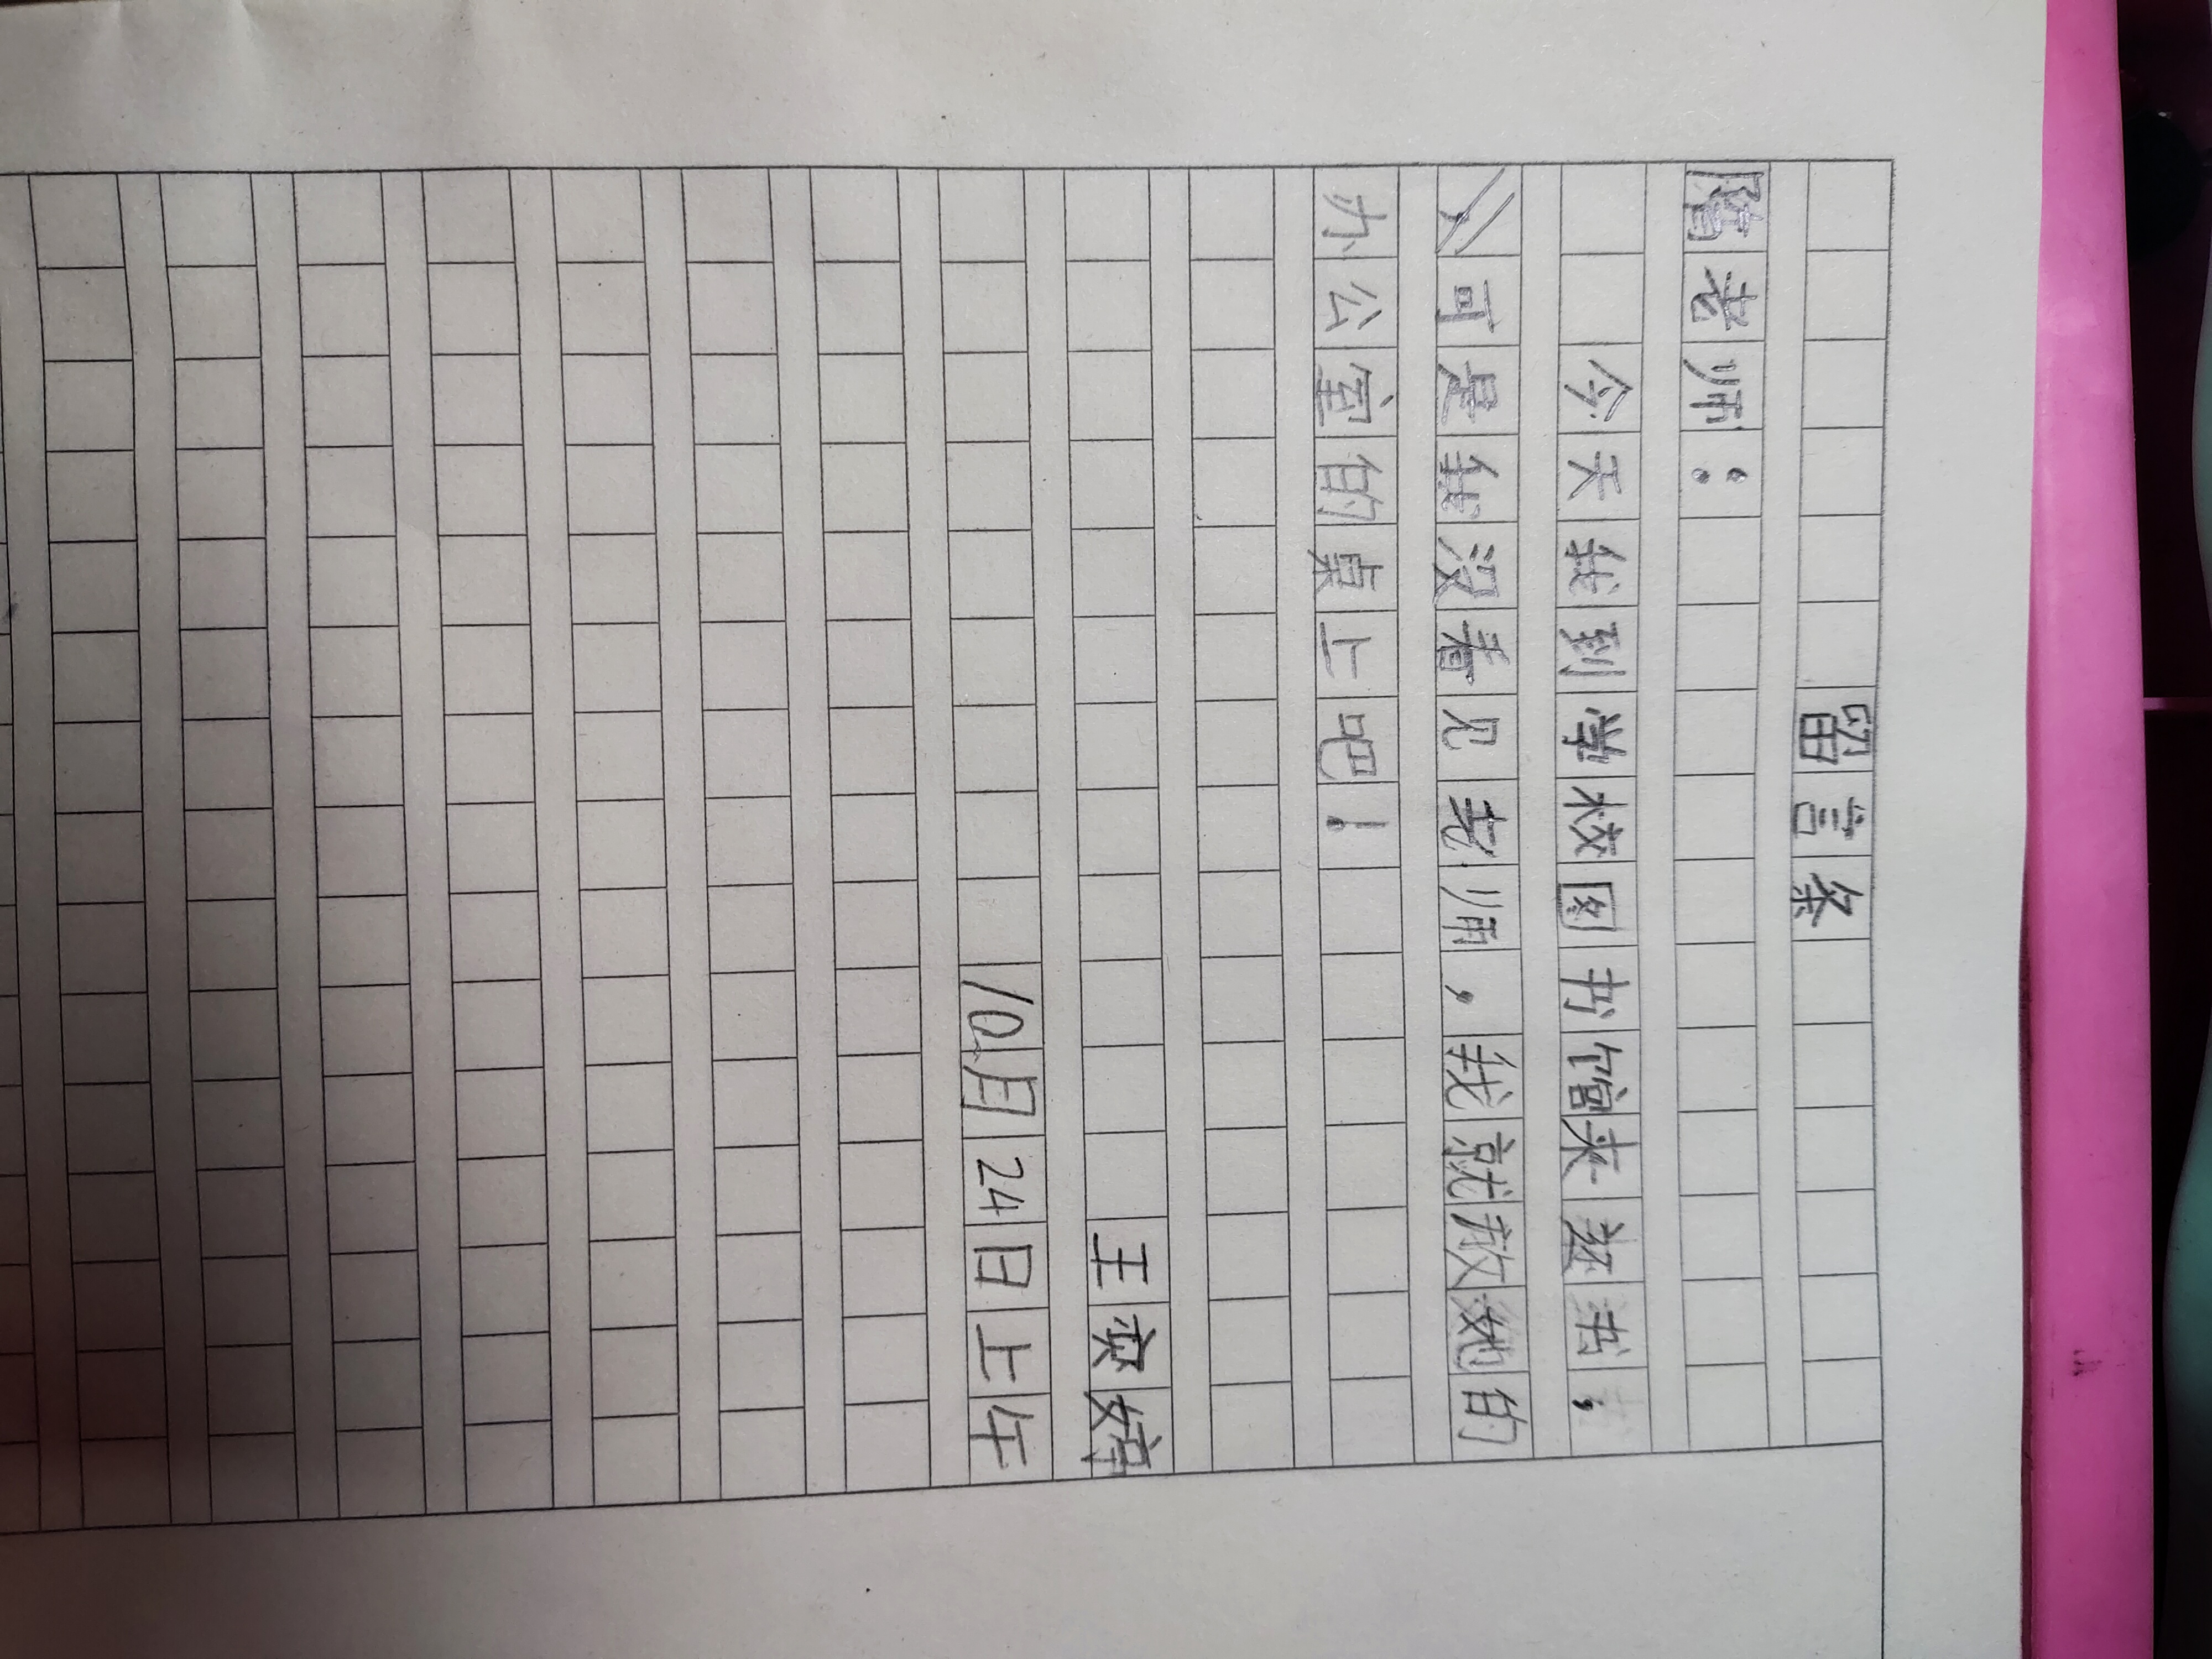 留言条
隋老师：
今天我到学校图书馆来还书，
可是我没看见老师，我就放她的
办公室的桌上吧！
王奕婷
10月24日上午